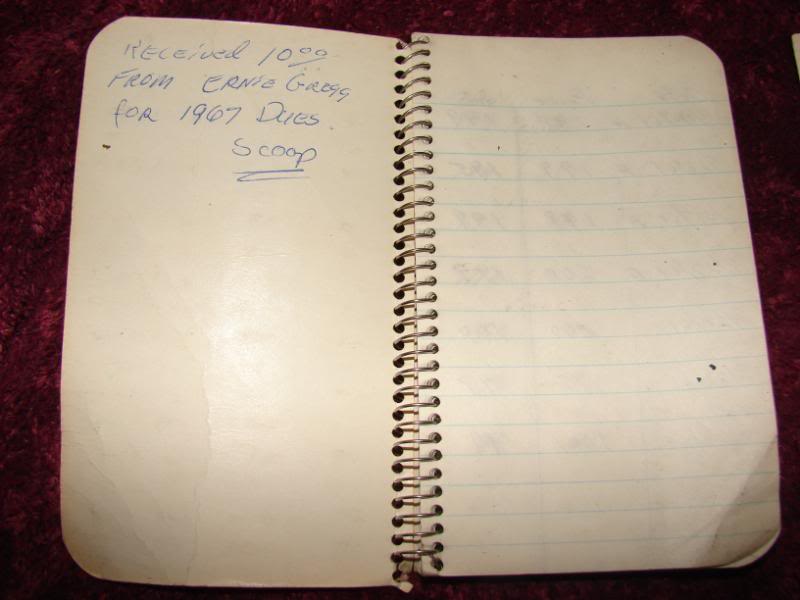 RECEIVED 10.00
FROM ERNIE GREGG
FOR 1967 DUES.
SCOOP